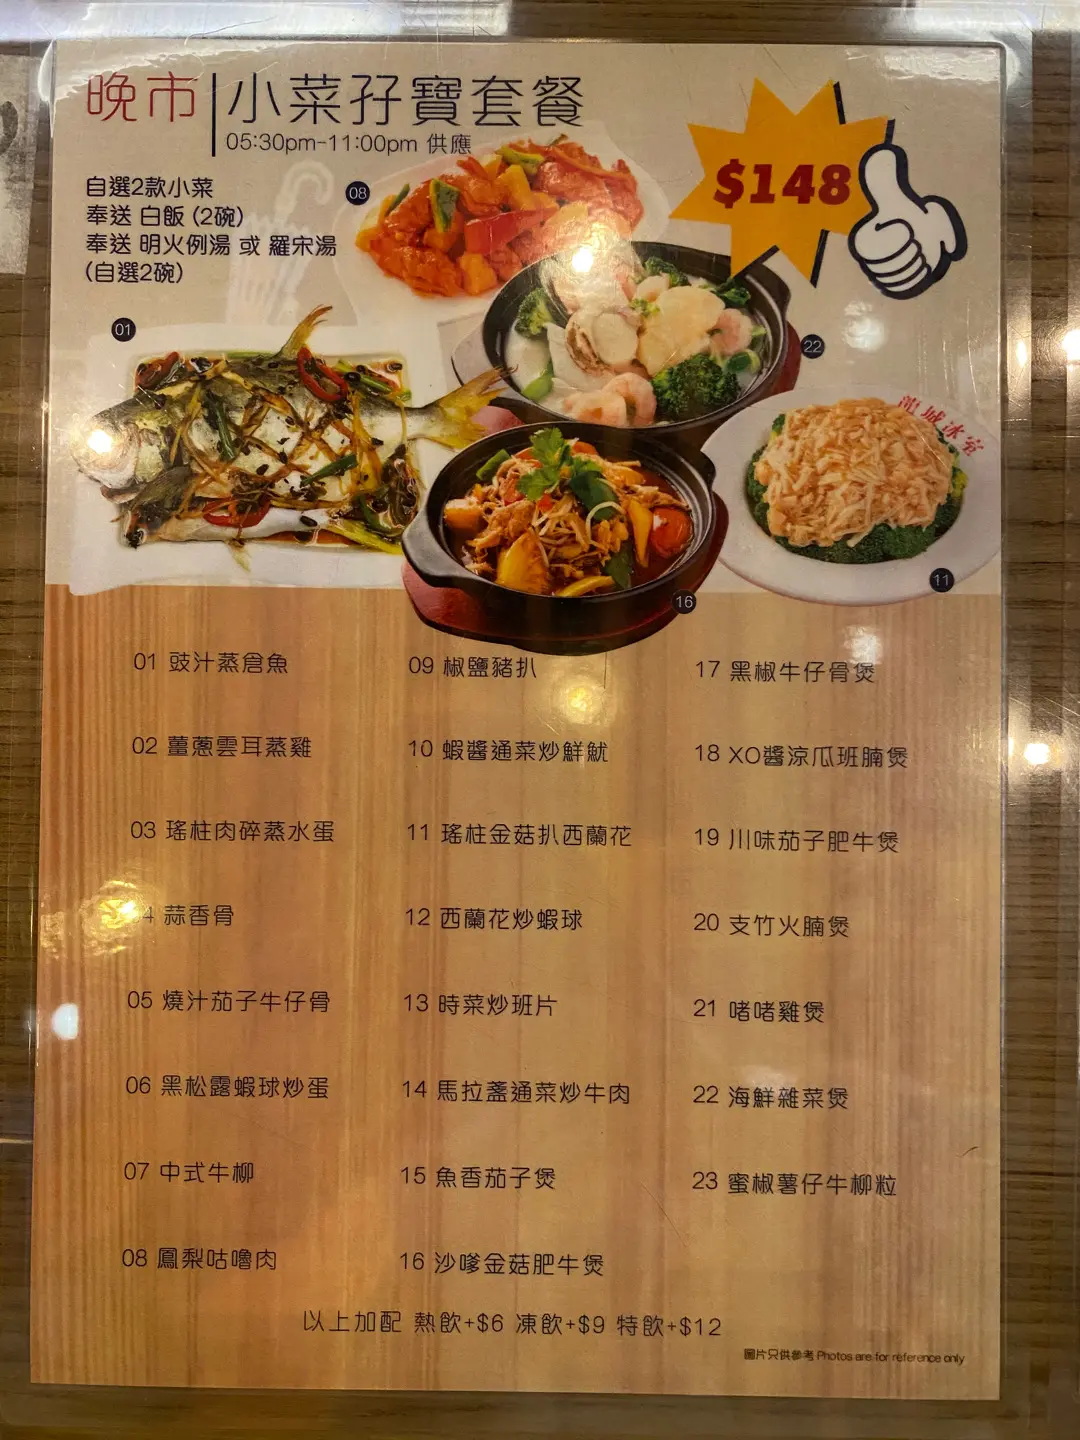 晚市 小菜孖寶套餐
05:30pm-11:00pm 供應
$148
自選2款小菜
奉送 白飯 (2碗)
奉送 明火例湯 或 羅宋湯
(自選2碗)
08
01
22
龍城冰室
11
16
01 豉汁蒸倉魚
02 薑蔥雲耳蒸雞
03 瑤柱肉碎蒸水蛋
04 蒜香骨
05 燒汁茄子牛仔骨
06 黑松露蝦球炒蛋
07 中式牛柳
08 鳳梨咕嚕肉
09 椒鹽豬扒
10 蝦醬通菜炒鮮魷
11 瑤柱金菇扒西蘭花
12 西蘭花炒蝦球
13 時菜炒班片
14 馬拉盞通菜炒牛肉
15 魚香茄子煲
16 沙嗲金菇肥牛煲
17 黑椒牛仔骨煲
18 XO醬涼瓜班腩煲
19 川味茄子肥牛煲
20 支竹火腩煲
21 啫啫雞煲
22 海鮮雜菜煲
23 蜜椒薯仔牛柳粒
以上加配 熱飲+$6 凍飲+$9 特飲+$12
圖片只供參考 Photos are for reference only